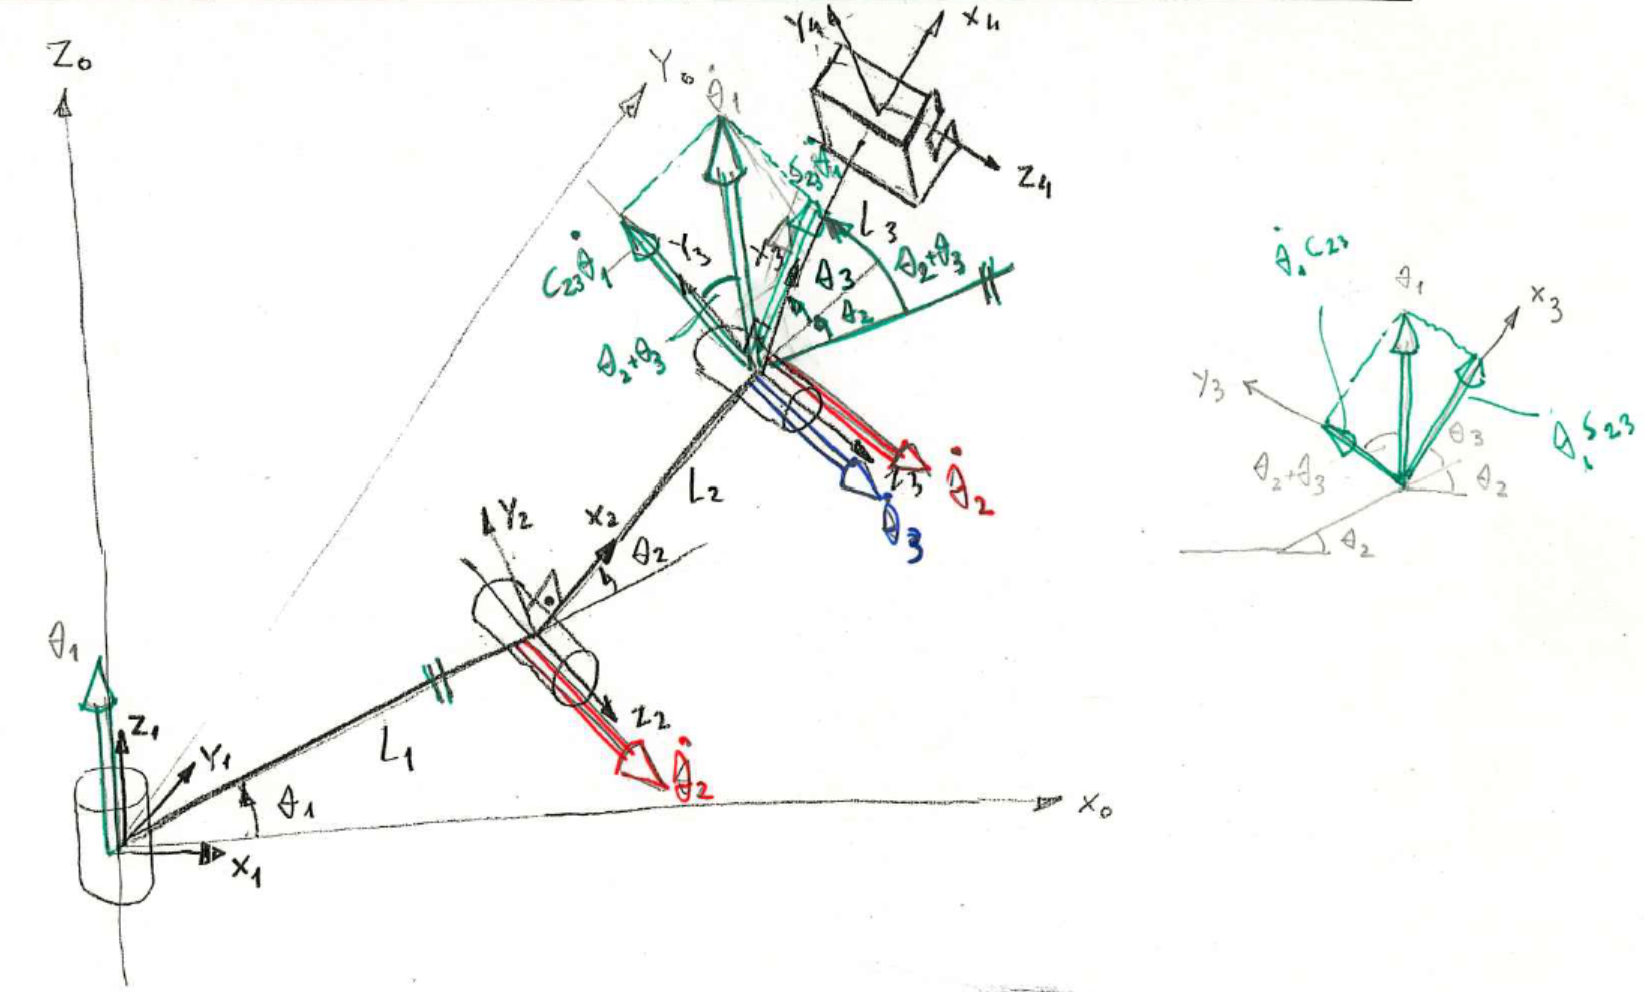 Z₀
Y₀
θ̇₁
Y₄
X₄
Z₄
S₂₃θ̇₁
L₃
C₂₃θ̇₁
Y₃
X₃
θ₃
θ₂+θ₃
θ₂
θ₂+θ₃
Z₃
θ̇₂
θ̇₃
L₂
Y₂
X₂
θ₂
Z₂
θ̇₂
θ̇₁
Z₁
Y₁
L₁
θ₁
X₁
X₀
θ̇₁C₂₃
θ̇₁
X₃
Y₃
θ̇₁S₂₃
θ₃
θ₂+θ₃
θ₂
θ₂